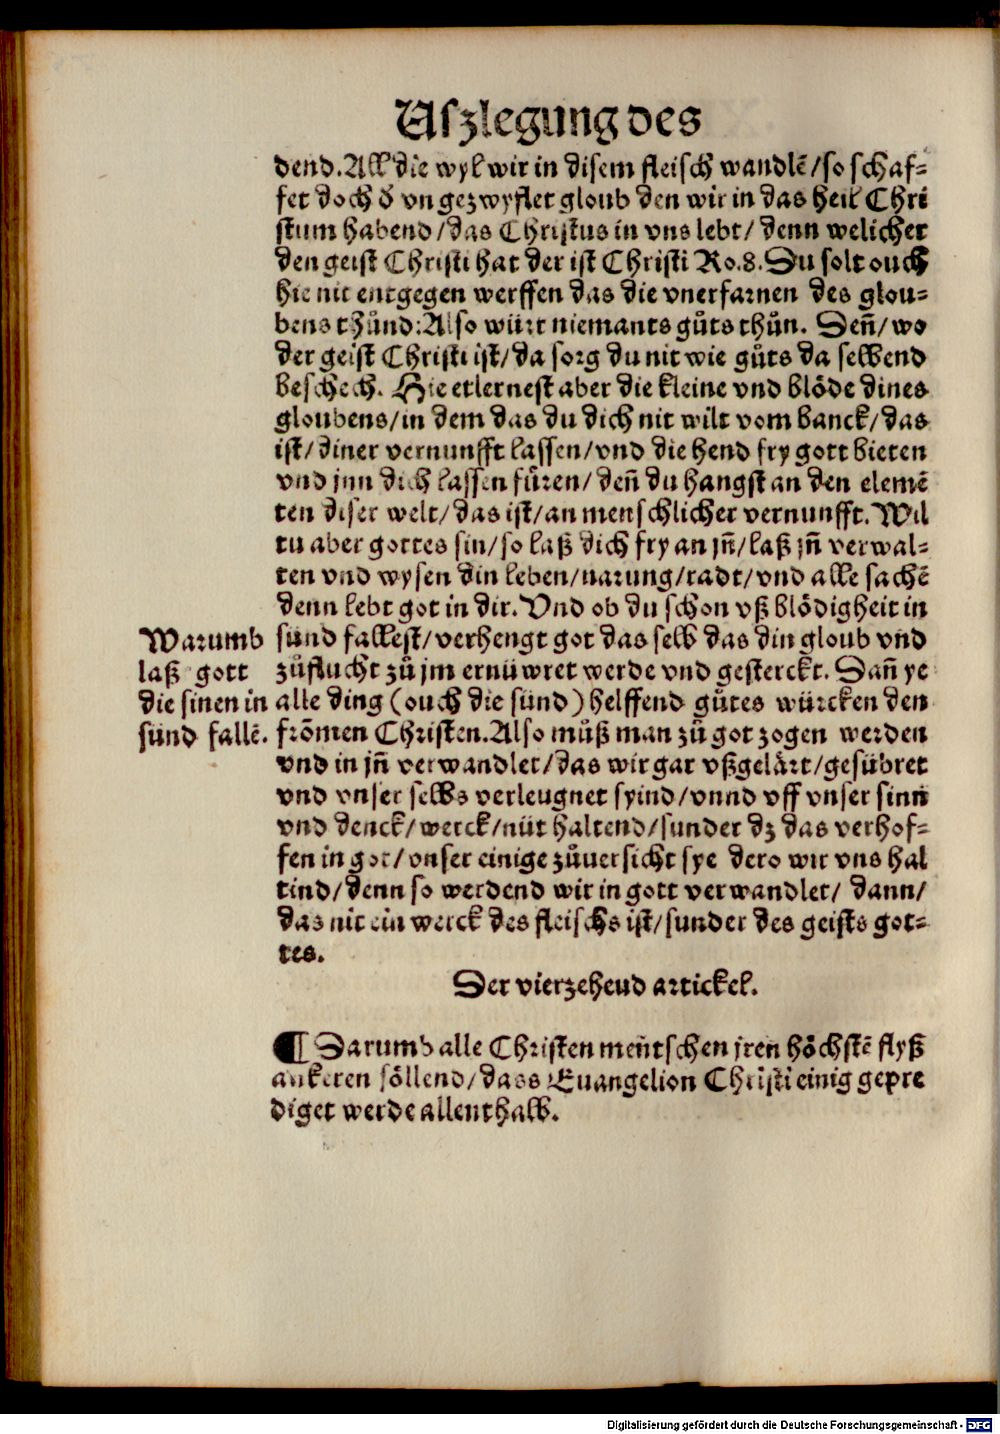 Uszlegung des
dend. All die wyl wir in disem fleisch wandlē/so schaf-
fet doch d̄ vngezwyflet gloub den wir in das heil Chri
stum habend/das Christus in vns lebt/denn welicher
den geist Christi hat der ist Christi Ro.8. Du solt ouch
hie nit entgegen werffen das die vnerfarnen des glou-
bens thůnd: Also würt niemants gůts thůn. Deñ/wo
der geist Christi ist/da sorg du nit wie gůts da selbend
beschech. Hie erlernest aber die kleine vnd blöde dines
gloubens/in dem das du dich nit wilt vom banck/das
ist/diner vernunfft lassen/vnd die hend fry gott bieten
vnd jnn dich lassen fůren/deñ du hangst an den elemē
ten diser welt/das ist/an menschlicher vernunfft. Wil
tu aber gottes sin/so laß dich fry an jñ/laß jñ verwal-
ten vnd wysen din leben/narung/radt/vnd alle sachē
denn lebt got in dir. Vnd ob du schon vß blödigheit in
sünd fallest/verhengt got das selb das din gloub vnd
zůflucht zů jm ernüwret werde vnd gesterckt. Dañ ye
alle ding (ouch die sünd) helffend gůtes würcken den
frõmen Christen. Also můß man zů got zogen werden
vnd in jñ verwandlet/das wir gar vßgelärt/gesübret
vnd vnser selbs verleugnet syind/vnnd vff vnser sinn
vnd denck/werck/nüt haltend/sunder dz das verhof-
fen in got/vnser einige zůuersicht sye dero wir vns hal
tind/denn so werdend wir in gott verwandlet/dann/
das nit ein werck des fleischs ist/sunder des geists got-
tes.
Warumb
laß gott
die sinen in
sünd fallē.
Der vierzehend artickel.
¶ Darumb alle Christen meñtschen jren höchstē flyß
ankeren söllend/dass Euangelion Christi einig gepre
diget werde allenthalb.
Digitalisierung gefördert durch die Deutsche Forschungsgemeinschaft - DFG